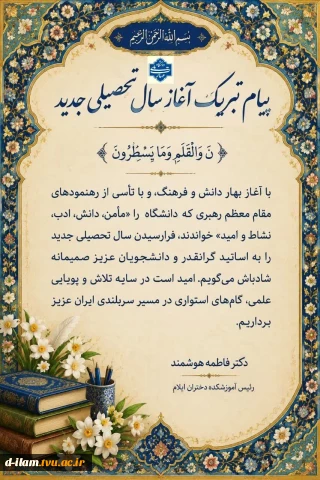 بسم الله الرحمن الرحیم
پیام تبریک آغاز سال تحصیلی جدید
﴿ نَ وَالْقَلَمِ وَمَا يَسْطُرُونَ ﴾
با آغاز بهار دانش و فرهنگ، و با تأسی از رهنمودهای
مقام معظم رهبری که دانشگاه را «مأمن، دانش، ادب،
نشاط و امید» خواندند، فرارسیدن سال تحصیلی جدید
را به اساتید گرانقدر و دانشجویان عزیز صمیمانه
شادباش می‌گویم. امید است در سایه تلاش و پویایی
علمی، گام‌های استواری در مسیر سربلندی ایران عزیز
برداریم.
دکتر فاطمه هوشمند
رئیس آموزشکده دختران ایلام
d-ilam.tvu.ac.ir